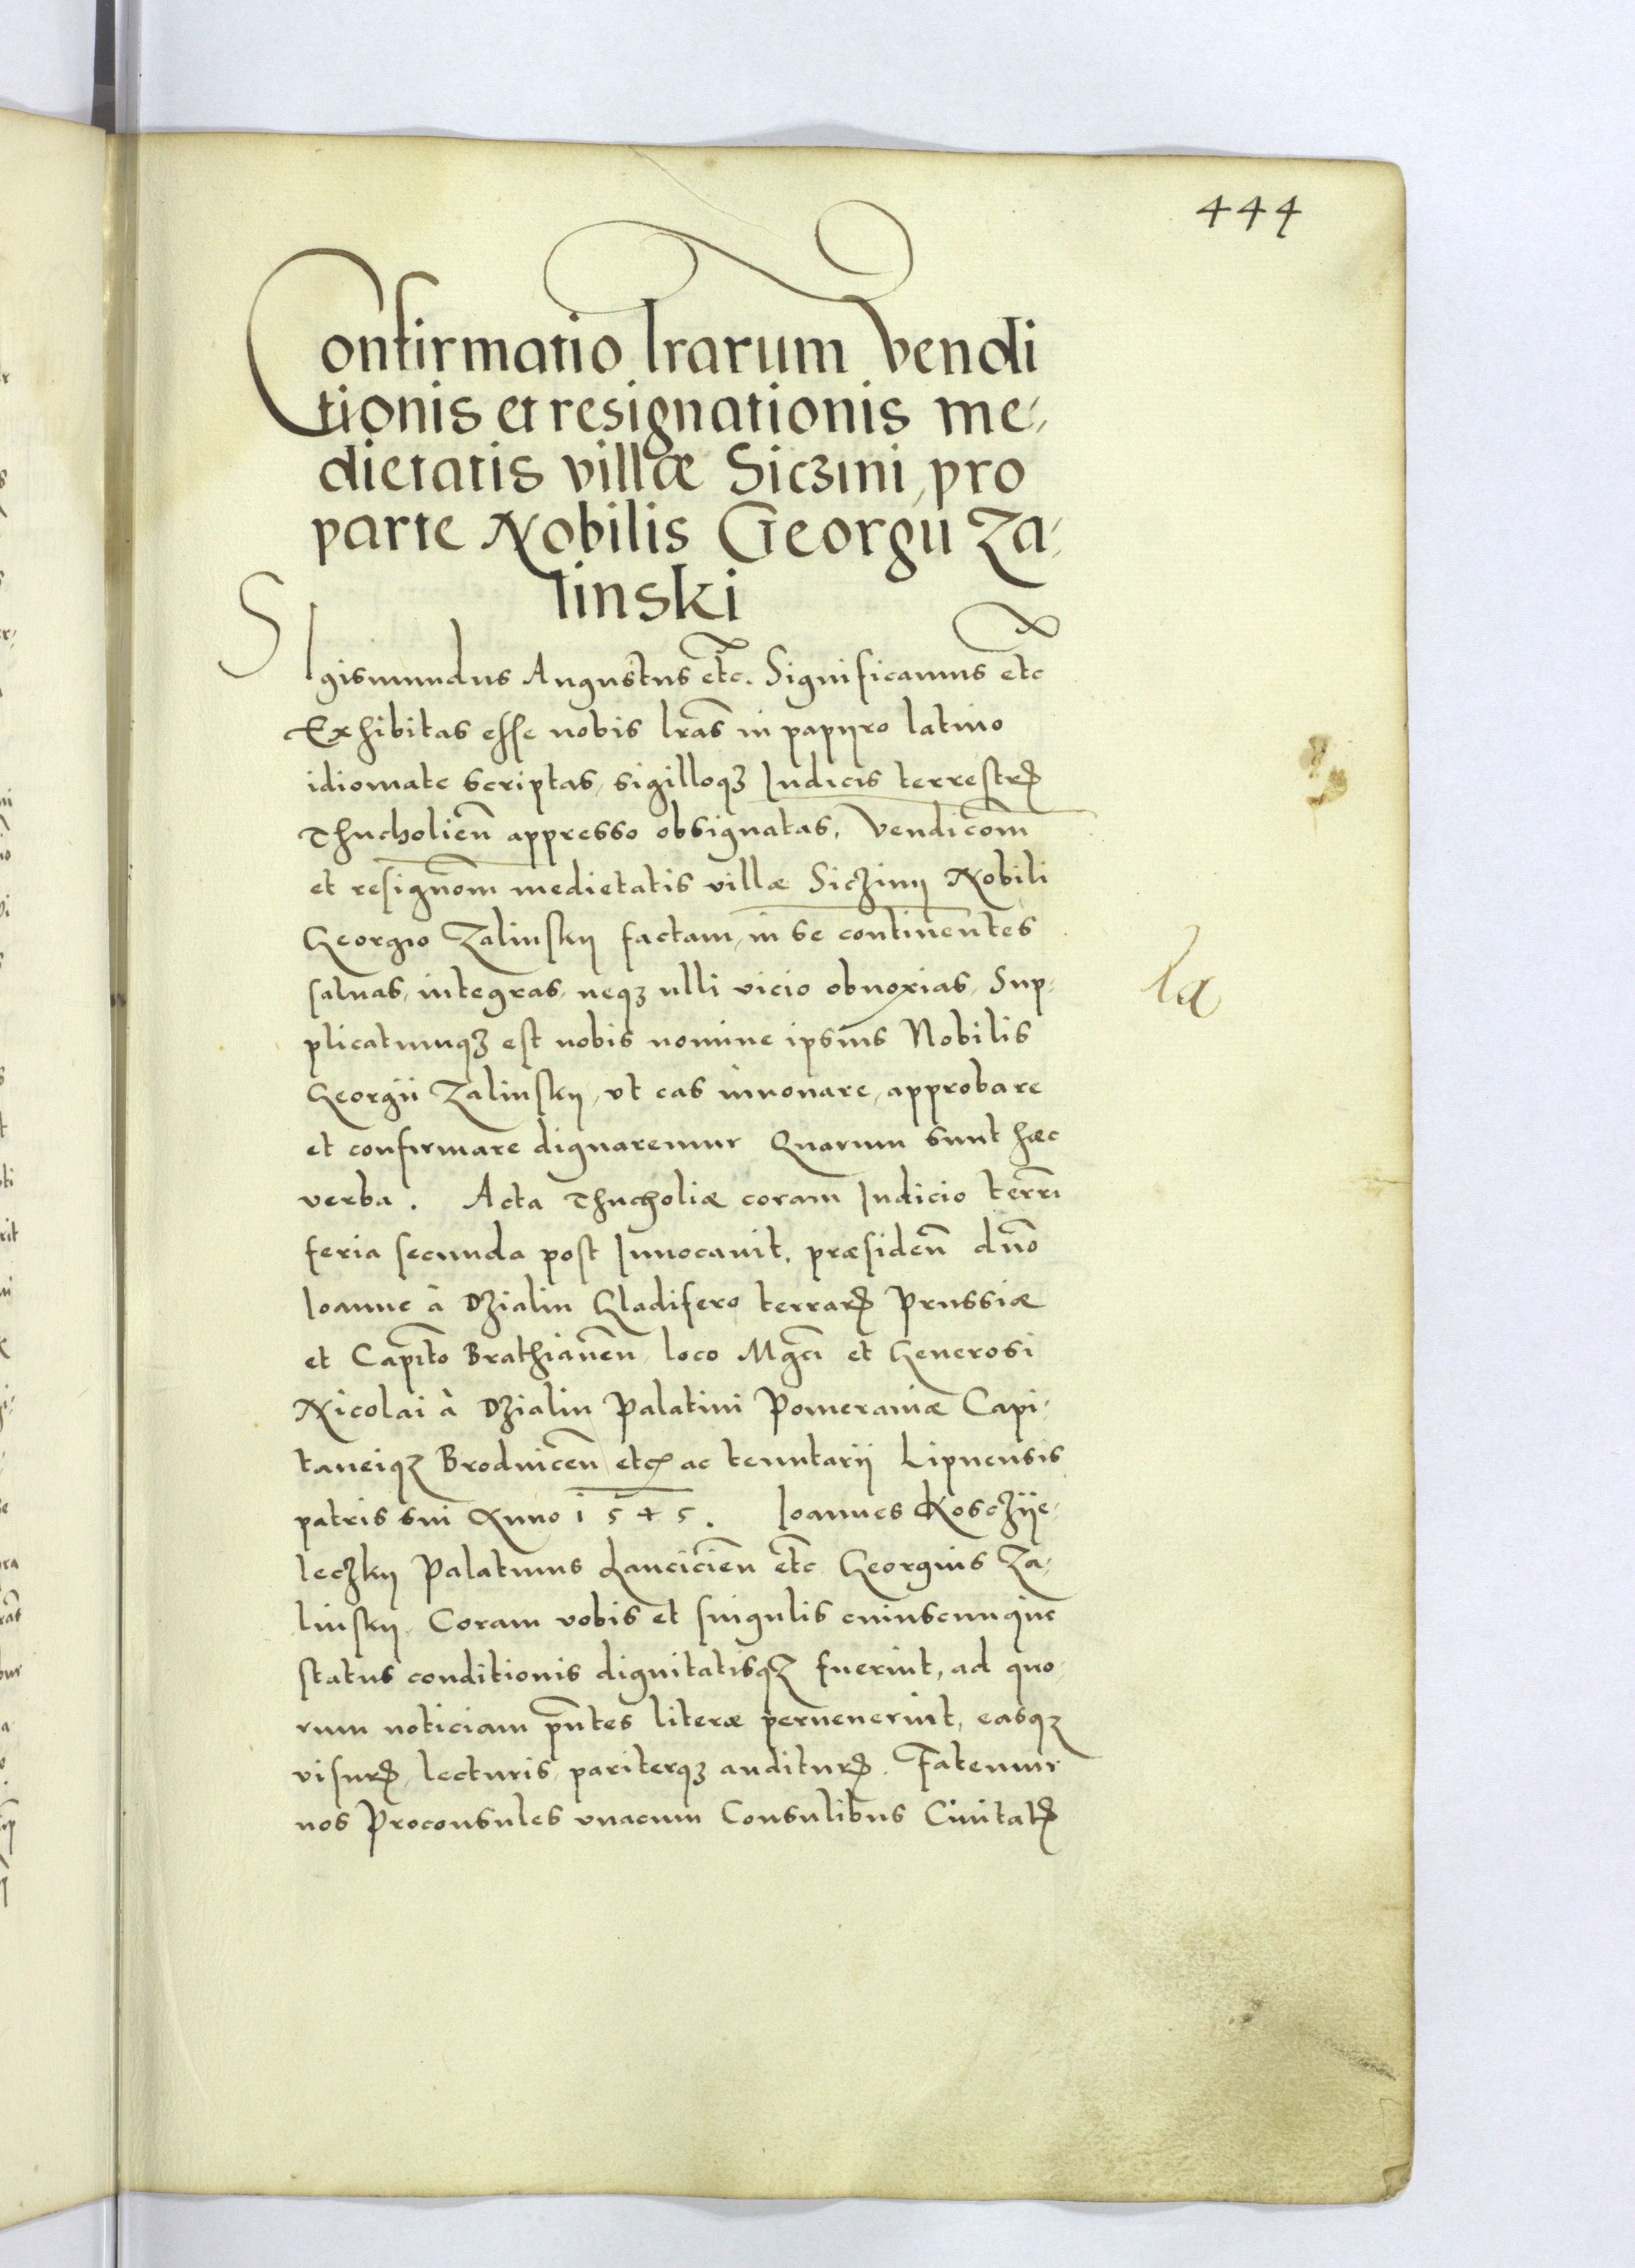 444
Confirmatio lrarum Vendi
tionis et resignationis me,
dietatis villæ Siczini, pro
parte Nobilis Georgii Za,
linski
SIgismundus Augustus etc. Significamus etc
Exhibitas esse nobis lras in papyro latino
idiomate scriptas, sigilloqꝫ Iudicis terrestrꝭ
Thucholien̄ appresso obsignatas, Vendicom̄
et resignom̄ medietatis villæ Siczinij Nobili
Georgio Zalinskij factam, in se continentes
saluas, integras, neqꝫ ulli vicio obnoxias, Sup,
plicatumqꝫ est nobis nomine ipsius Nobilis
Georgii Zalinskij, vt eas innouare, approbare
et confirmare dignaremur Quarum sunt hæc
verba. Acta Thucholiæ coram Iudicio terrī
feria secunda post Inuocauit, præsiden̄ dn̄o
Ioanne à Dzialin Gladifero terrarꝭ Prussiæ
et Capīto Brathianen̄, loco Mḡci et Generosi
Nicolai à Dzialin Palatini Pomeraniæ Capi,
taneiqꝫ Brodnicen̄ etcꝭ ac tenutarij Lipnensis
patris sui Anno 1545. Ioannes Kosczÿe,
leczkij Palatinus Lancicien̄ etc Georgius Za,
linskij. Coram vobis et singulis cuiuscunque
status conditionis dignitatisqꝫ fuerint, ad quo,
rum noticiam pn̄tes literæ peruenerint, easqꝫ
visurꝭ, lecturis, pariterqꝫ auditurꝭ. Fatemur
nos Proconsules vnacum Consulibus Ciuitatꝭ
la